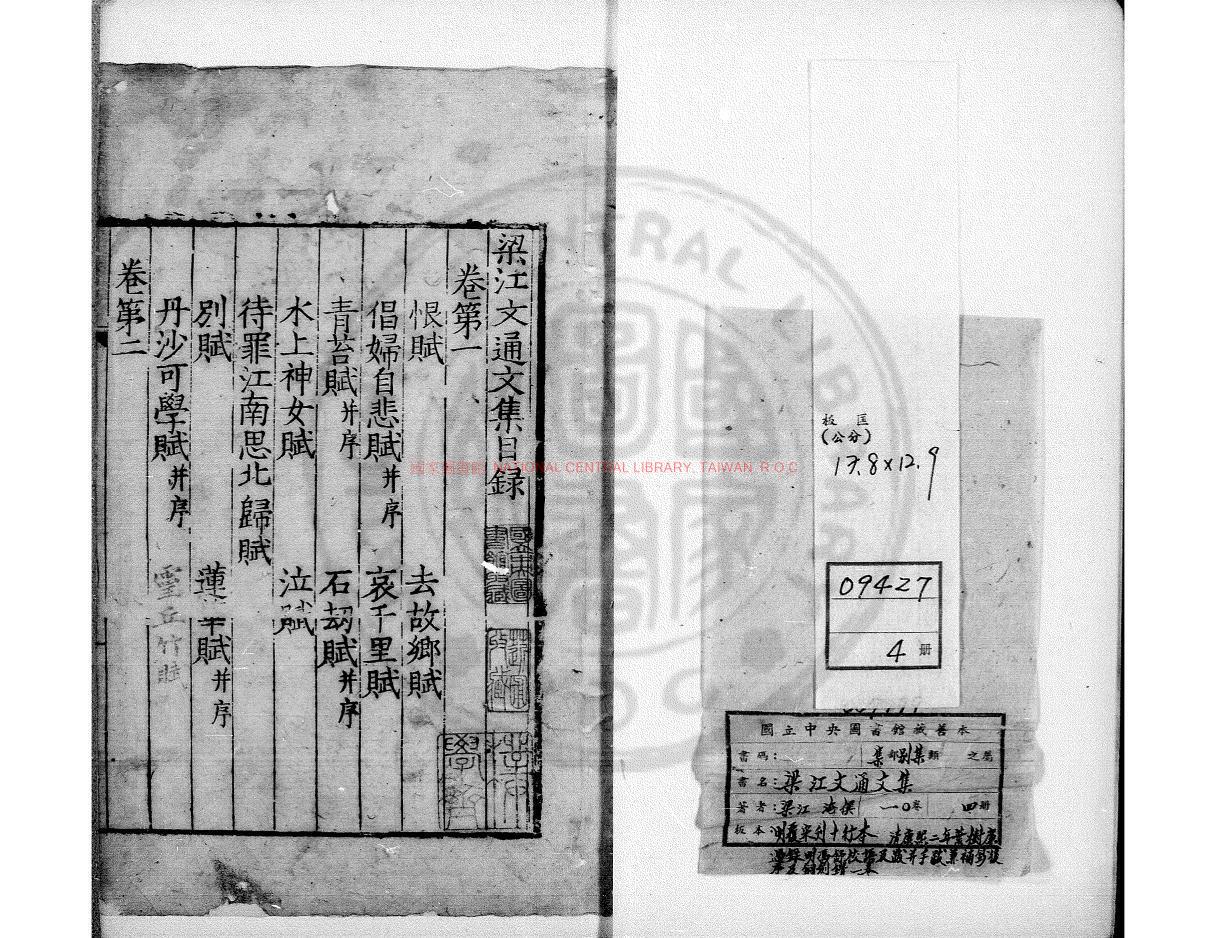 梁江文通文集目録
卷第一
恨賦 去故郷賦
倡婦自悲賦并序 哀千里賦
青苔賦并序 石刧賦并序
水上神女賦 泣賦
待罪江南思北歸賦
別賦 蓮華賦并序
丹沙可學賦并序 靈丘竹賦
卷第二
板匡
(公分)
17.8×12.9
09427
4 册
國立中央圖書館藏善本
書碼： 集部別集類 之屬
書名：梁江文通文集
著者：梁江淹撰 一〇卷 四册
板本：明覆宋刊十行本 清康熙二年葉樹廉
國家圖書館 NATIONAL CENTRAL LIBRARY, TAIWAN, R.O.C